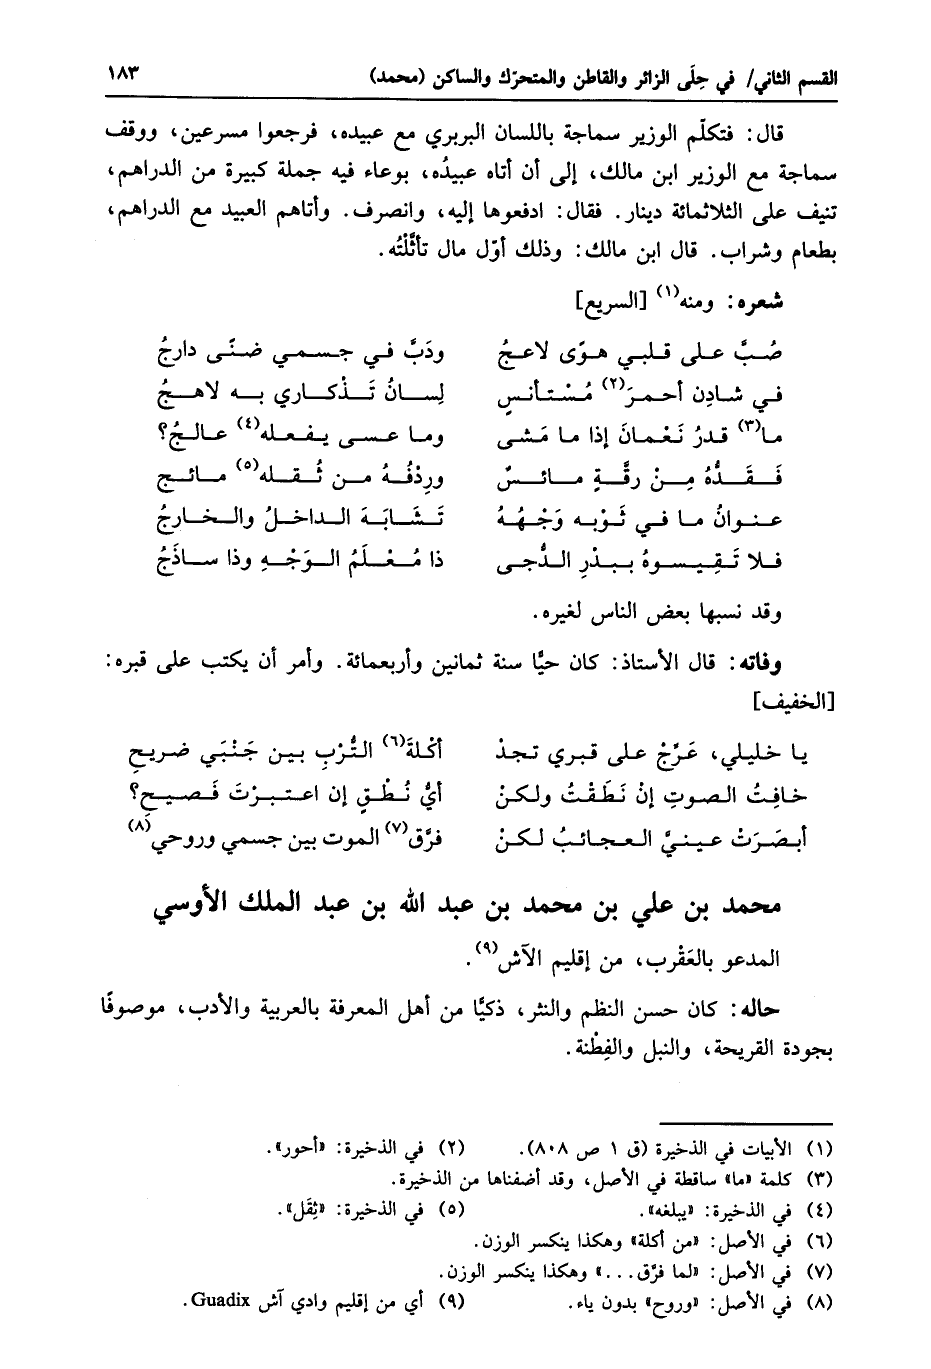 القسم الثاني/ في حِلَى الزائر والقاطن والمتحرّك والساكن (محمد) ١٨٣
قال: فتكلّم الوزير سماجة باللسان البربري مع عبيده، فرجعوا مسرعين، ووقف
سماجة مع الوزير ابن مالك، إلى أن أتاه عبيدُه، بوعاء فيه جملة كبيرة من الدراهم،
تنيف على الثلاثمائة دينار. فقال: ادفعوها إليه، وانصرف. وأتاهم العبيد مع الدراهم،
بطعام وشراب. قال ابن مالك: وذلك أوّل مال تأثَّلْتُه.
شعره: ومنه(١) [السريع]
صُبَّ على قلبي هوًى لاعجُ ودَبَّ في جسمي ضنًى دارجُ
في شادِن أحمرَ(٢) مُسْتأنسٍ لِسانُ تَذْكاري به لاهجُ
ما(٣) قدرُ نَعْمانَ إذا ما مَشى وما عسى يفعله(٤) عالجُ؟
فَقَدُّهُ مِنْ رقَّةٍ مائسٌ ورِدْفُهُ من ثُقله(٥) مائج
عنوانُ ما في ثَوْبه وَجْهُهُ تَشابَهَ الداخلُ والخارجُ
فلا تَقِيسوهُ ببَدْرِ الدُّجى ذا مُعْلَمُ الوَجْهِ وذا ساذَجُ
وقد نسبها بعض الناس لغيره.
وفاته: قال الأستاذ: كان حيًّا سنة ثمانين وأربعمائة. وأمر أن يكتب على قبره:
[الخفيف]
يا خليلي، عَرِّجْ على قبري تجدْ أكْلةَ(٦) التُّرْبِ بين جَنْبَي ضريحِ
خافِتُ الصوتِ إنْ نَطَقْتُ ولكنْ أيُّ نُطْقٍ إن اعتبرْتَ فَصيحِ؟
أبصَرَتْ عينيَّ العجائبُ لكنْ فرَّق(٧) الموت بين جسمي وروحي(٨)
محمد بن علي بن محمد بن عبد الله بن عبد الملك الأوسي
المدعو بالعَقْرب، من إقليم الآش(٩).
حاله: كان حسن النظم والنثر، ذكيًّا من أهل المعرفة بالعربية والأدب، موصوفًا
بجودة القريحة، والنبل والفِطْنة.
(١) الأبيات في الذخيرة (ق ١ ص ٨٠٨). (٢) في الذخيرة: «أحور».
(٣) كلمة «ما» ساقطة في الأصل، وقد أضفناها من الذخيرة.
(٤) في الذخيرة: «يبلغه». (٥) في الذخيرة: «ثِقَل».
(٦) في الأصل: «من أكلة» وهكذا ينكسر الوزن.
(٧) في الأصل: «لما فرَّق...» وهكذا ينكسر الوزن.
(٨) في الأصل: «وروح» بدون ياء. (٩) أي من إقليم وادي آش Guadix.